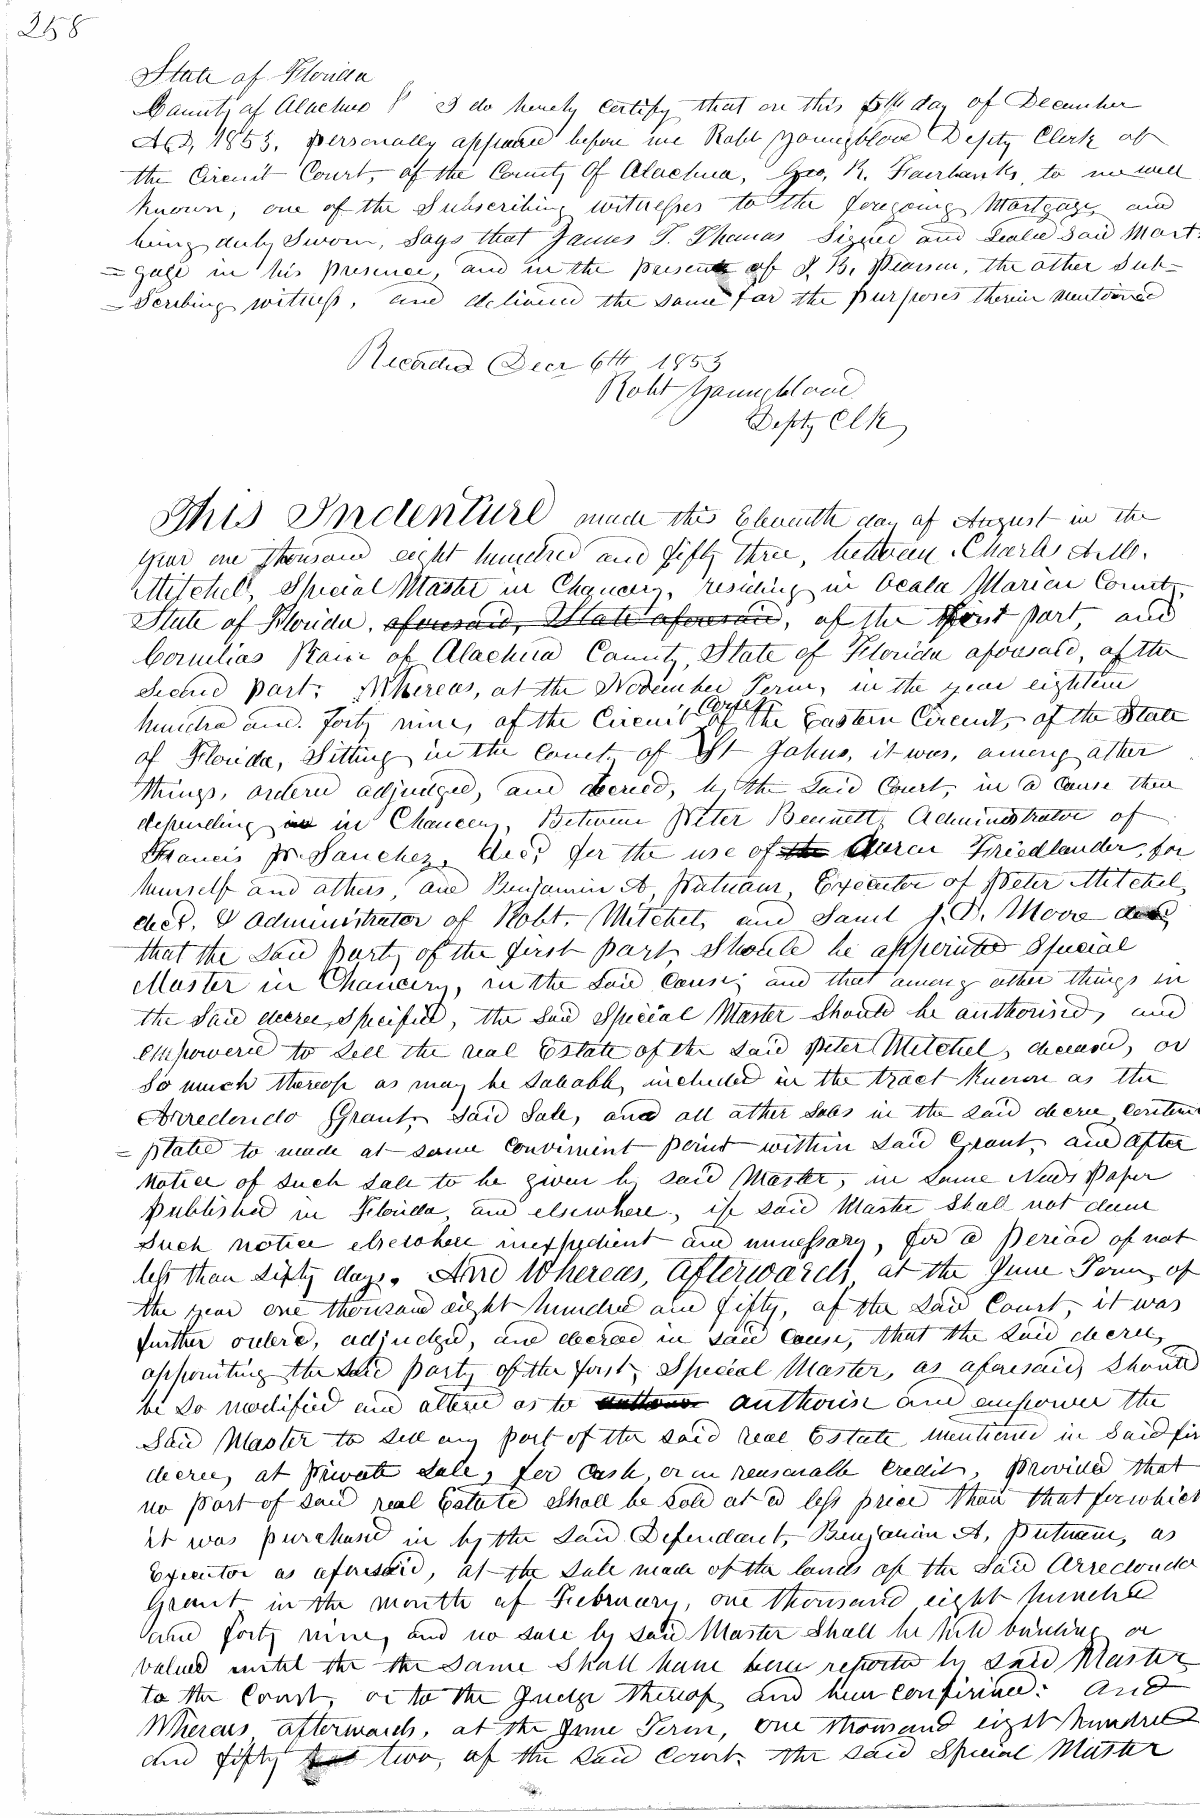 258
State of Florida
County of Alachua I do hereby certify that on this 5th day of December
A.D, 1853, personally appeared before me Robt Youngblood Depty Clerk of
the Circuit Court, of the County Of Alachua, Geo, R. Fairbanks, to me well
known, one of the Subscribing witnesses to the foregoing Mortgage, and
being duly Sworn, Says that James T. Thomas Signed and Sealed Said Mort-
=gage in his presence, and in the presence of J. B. Pearson, the other Sub-
=Scribing witness, and delivered the same for the purposes therein mentioned
Recorded Decr 6th 1853
Robt Youngblood
Depty Clk,
This Indenture made this Eleventh day of August in the
year one thousand eight hundred and fifty three, between Charles A.M.
Mitchel, Special Master in Chancery, residing in Ocala Marion County,
State of Florida, aforesaid, State aforesaid, of the first part, and
Cornelias Rain of Alachua County, State of Florida aforesaid, of the
Second part; Whereas, at the November Term, in the year eighteen
hundred and forty nine, of the Circuit Court of the Eastern Circuit, of the State
of Florida, Sitting in the County of St Johns, it was, among other
things, ordered adjudged, and decreed, by the Said Court, in a cause then
depending in in Chancery, Between Peter Bennett, Administrator of
Francis P. Sanchez, decd, for the use of the Aaron Friedlander, for
himself and others, and Benjamin A, Putnam, Executor of Peter Mitchel,
decd. & administrator of Robt. Mitchel, and Saml J.P. Moore decd,
that the Said party of the first part, Should be appointed Special
Master in Chancery, in the Said Cause; and that among other things in
the Said decree, Specified, the Said Special Master Should be authorised, and
empowered to sell the real Estate of the Said Peter Mitchel, deceased, or
So much thereof as may be Saleable, included in the tract known as the
Arredondo Grant, Said Sale, and all other Sales in the Said decree, contem
=plated to made at some convinient point within Said Grant, and after
notice of such sale to be given by said Master, in some News Paper
published in Florida, and elsewhere, if said Master Shall not deem
Such notice elsewhere inexpedient and unnessary, for a period of not
less than Sixty days. And Whereas, afterwards, at the June Term, of
the year one thousand eight hundred and fifty, of the Said Court, it was
further ordered, adjudged, and decreed in said Cause, that the said decree,
appointing the said party of the first, Special Master, as aforesaid, Should
be So modified and altered as to authorise authorise and empower the
Said Master to Sell any part of the said real Estate mentioned in Said fir
decree, at private Sale, for Cash, or on reasonable Credit, provided that
no part of said real Estate Shall be sold at a less price than that forwhich
it was purchased in by the Said Defendant, Benjamin A. Putnam, as
Executor as aforesaid, at the Sale made of the lands of the Said Arredondo
Grant in the month of February, one thousand eight hundred
and forty nine, and no sale by said Master Shall be held binding or
valued until the the Same Shall have been reported by Said Master
to the Court, or to the Judge thereof, and been confirmed: And
Whereas, afterwards, at the June Term, one thousand eight hundred
and fifty two, of the Said Court. the said Special Master